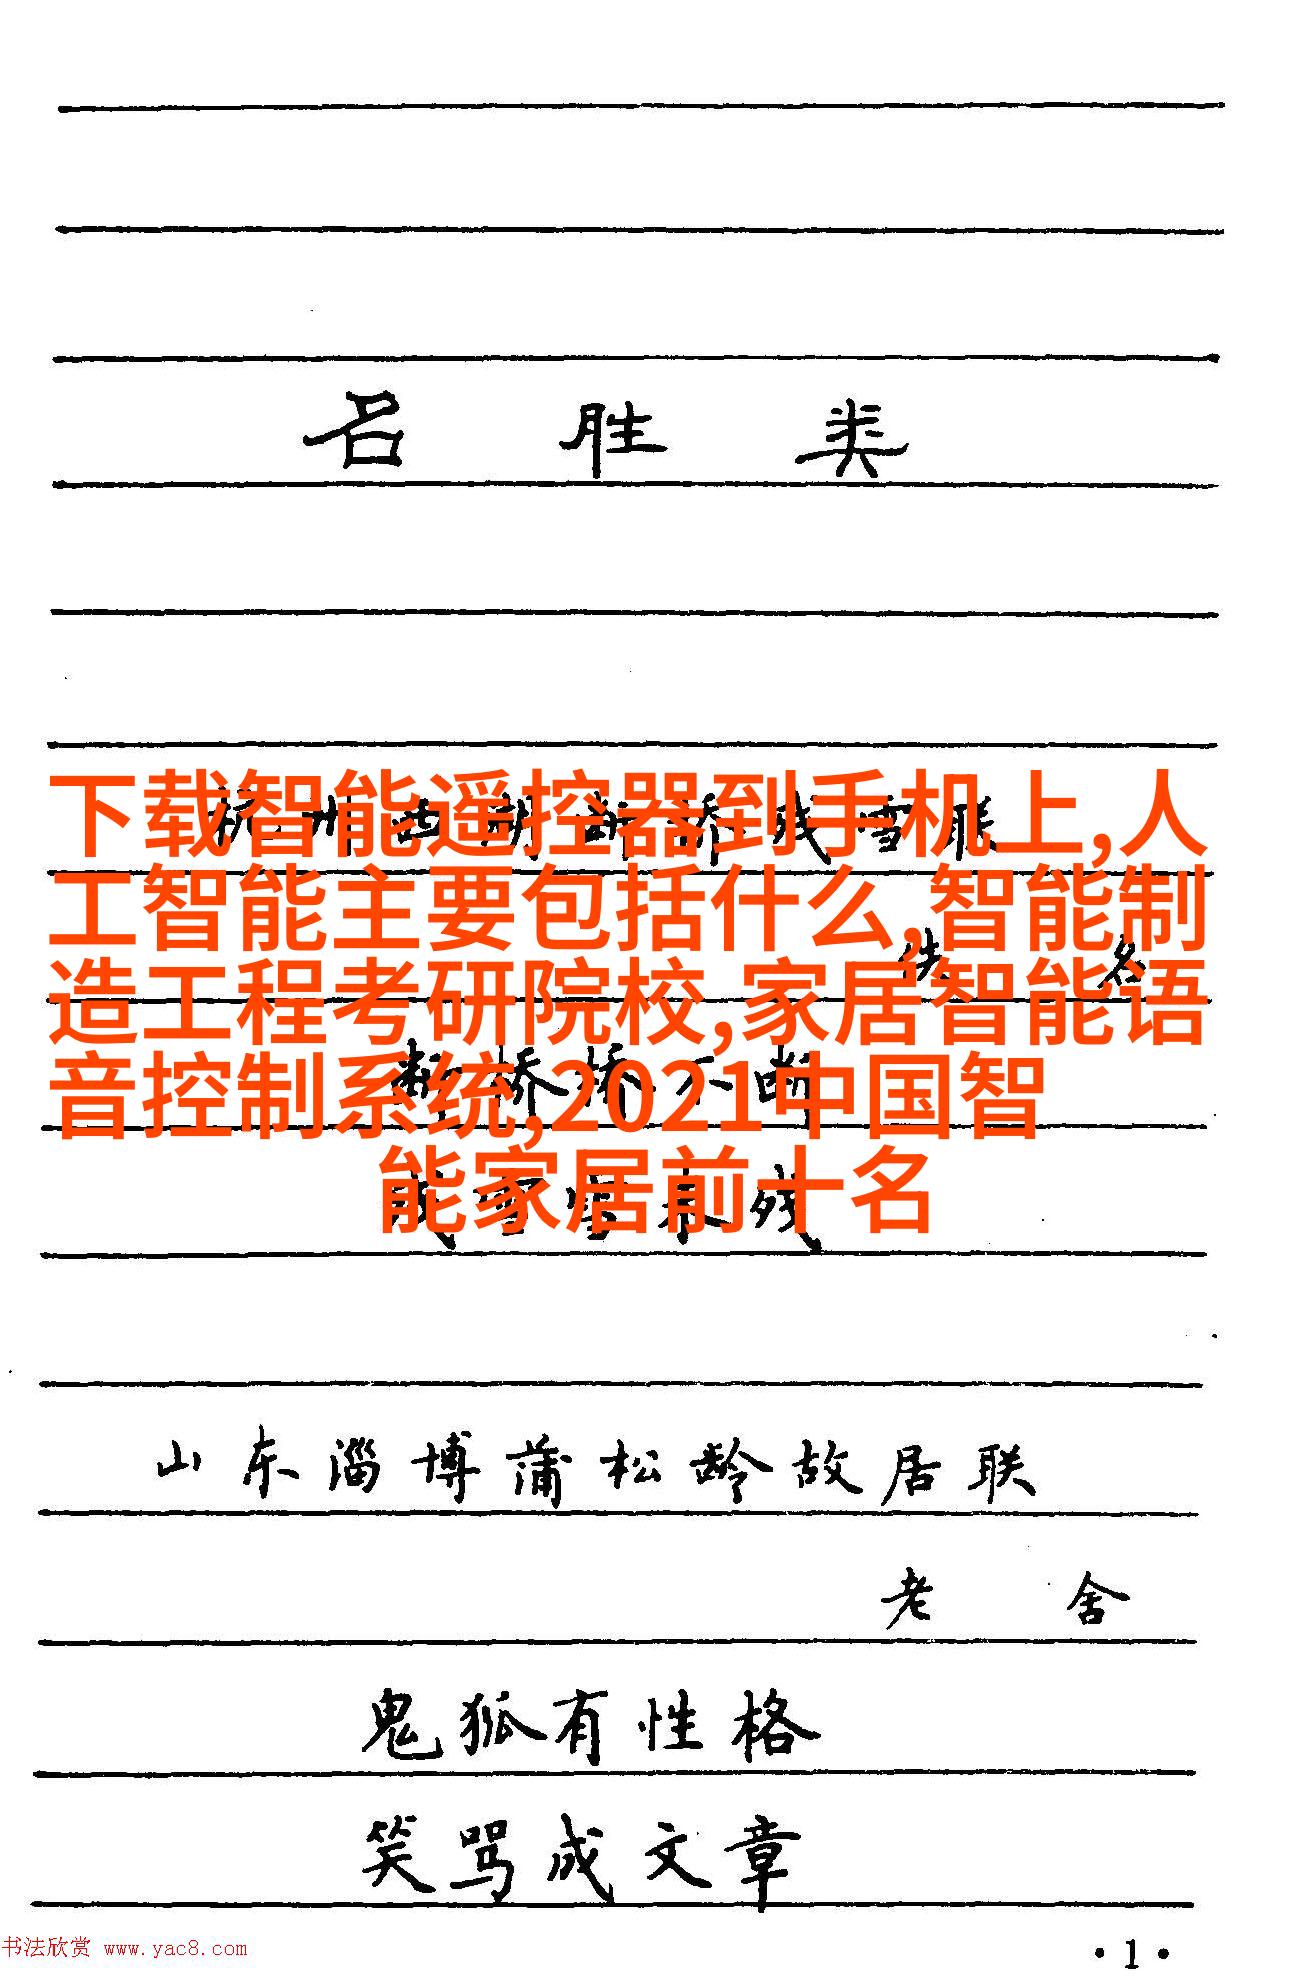 名胜类
下载智能遥控器到手机上,人
杭州西湖断桥残雪联
工智能主要包括什么,智能制
佚名
造工程考研院校,家居智能语
断桥桥不断
音控制系统,2021中国智
残雪雪未残
能家居前十名
山东淄博蒲松龄故居联
老舍
鬼狐有性格
笑骂成文章
书法欣赏 www.yac8.com
·1·